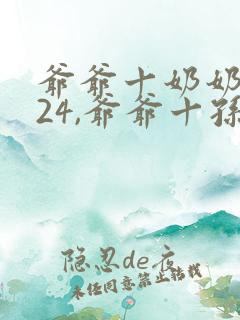 爷爷十奶奶
24,爷爷十孫
隐忍de夜
未经同意禁止转载